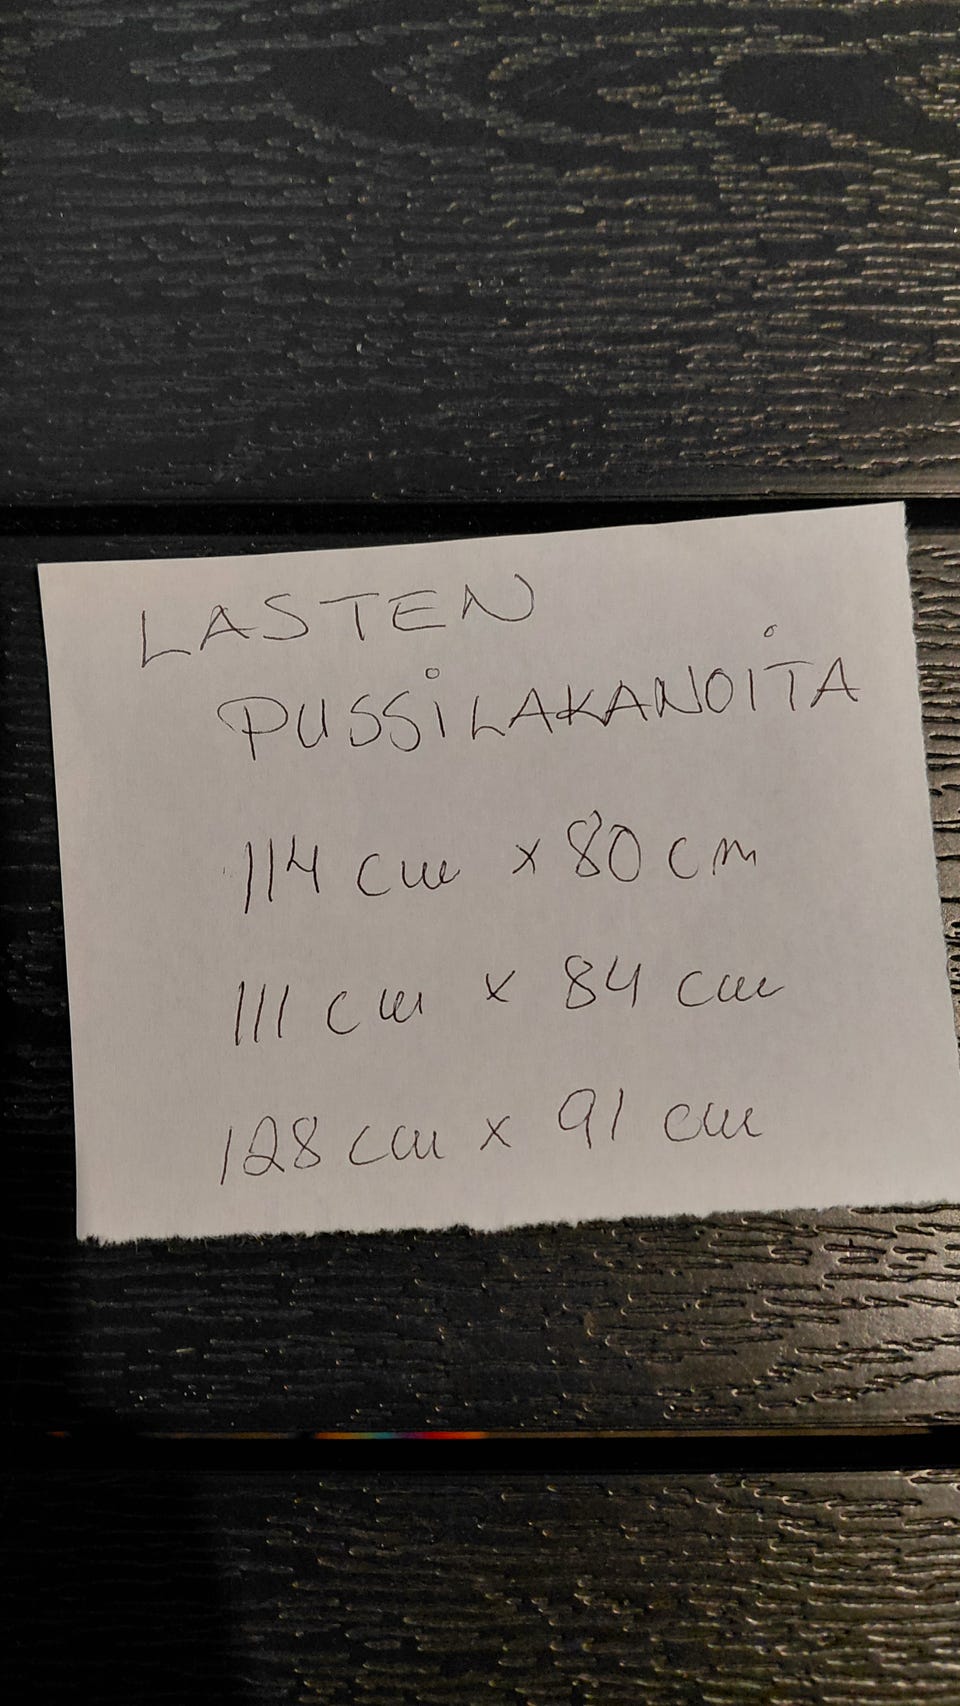 LASTEN
PUSSiLAKANOiTA
114 cm x 80 cm
111 cm x 84 cm
128 cm x 91 cm